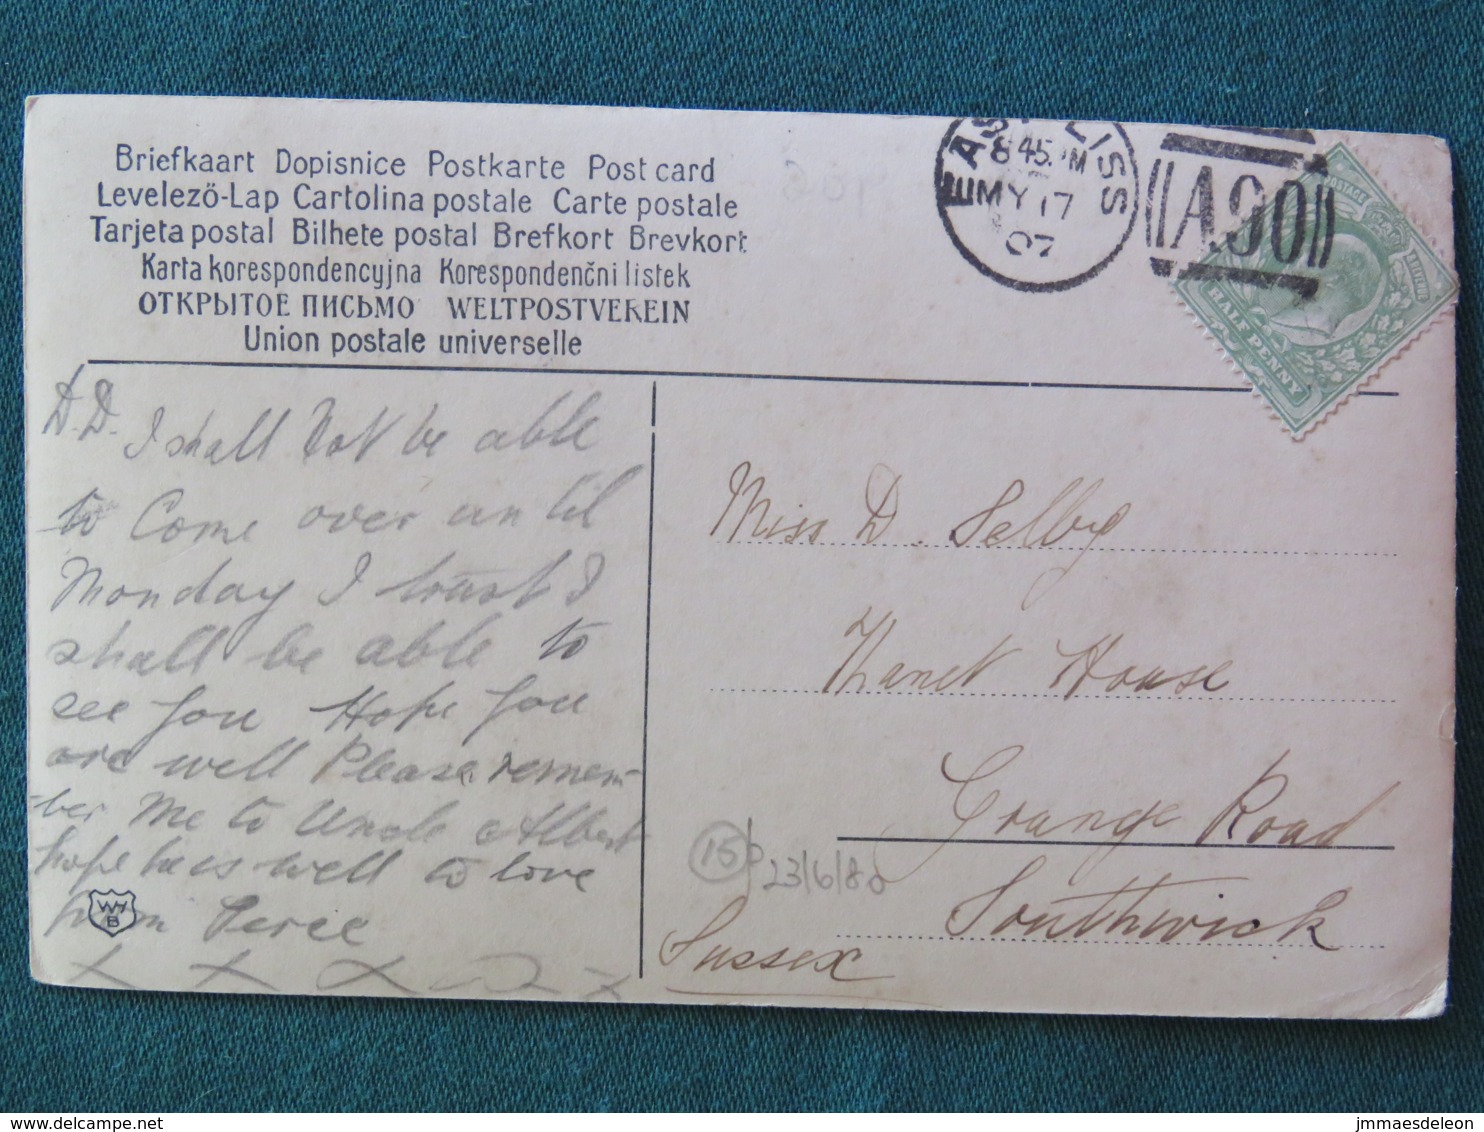 Briefkaart Dopisnice Postkarte Post card
Levelező-Lap Cartolina postale Carte postale
Tarjeta postal Bilhete postal Brefkort Brevkort
Karta korespondencyjna Korespondenčni listek
ОТКРЫТОЕ ПИСЬМО WELTPOSTVEREIN
Union postale universelle
8 45 PM
MY 17
07
A90
POSTAGE
HALF PENNY
D.D. I shall Not be able
to Come over until
Monday I trust I
shall be able to
see You Hope You
are well Please remem-
-ber Me to Uncle Albert
hope he is well to love
from Perce
x x x x
WH
B
Miss D. Selby
Thanet House
Grange Road
Southwick
Sussex
15
23/6/80
delcampe.net
jmmaesdeleon